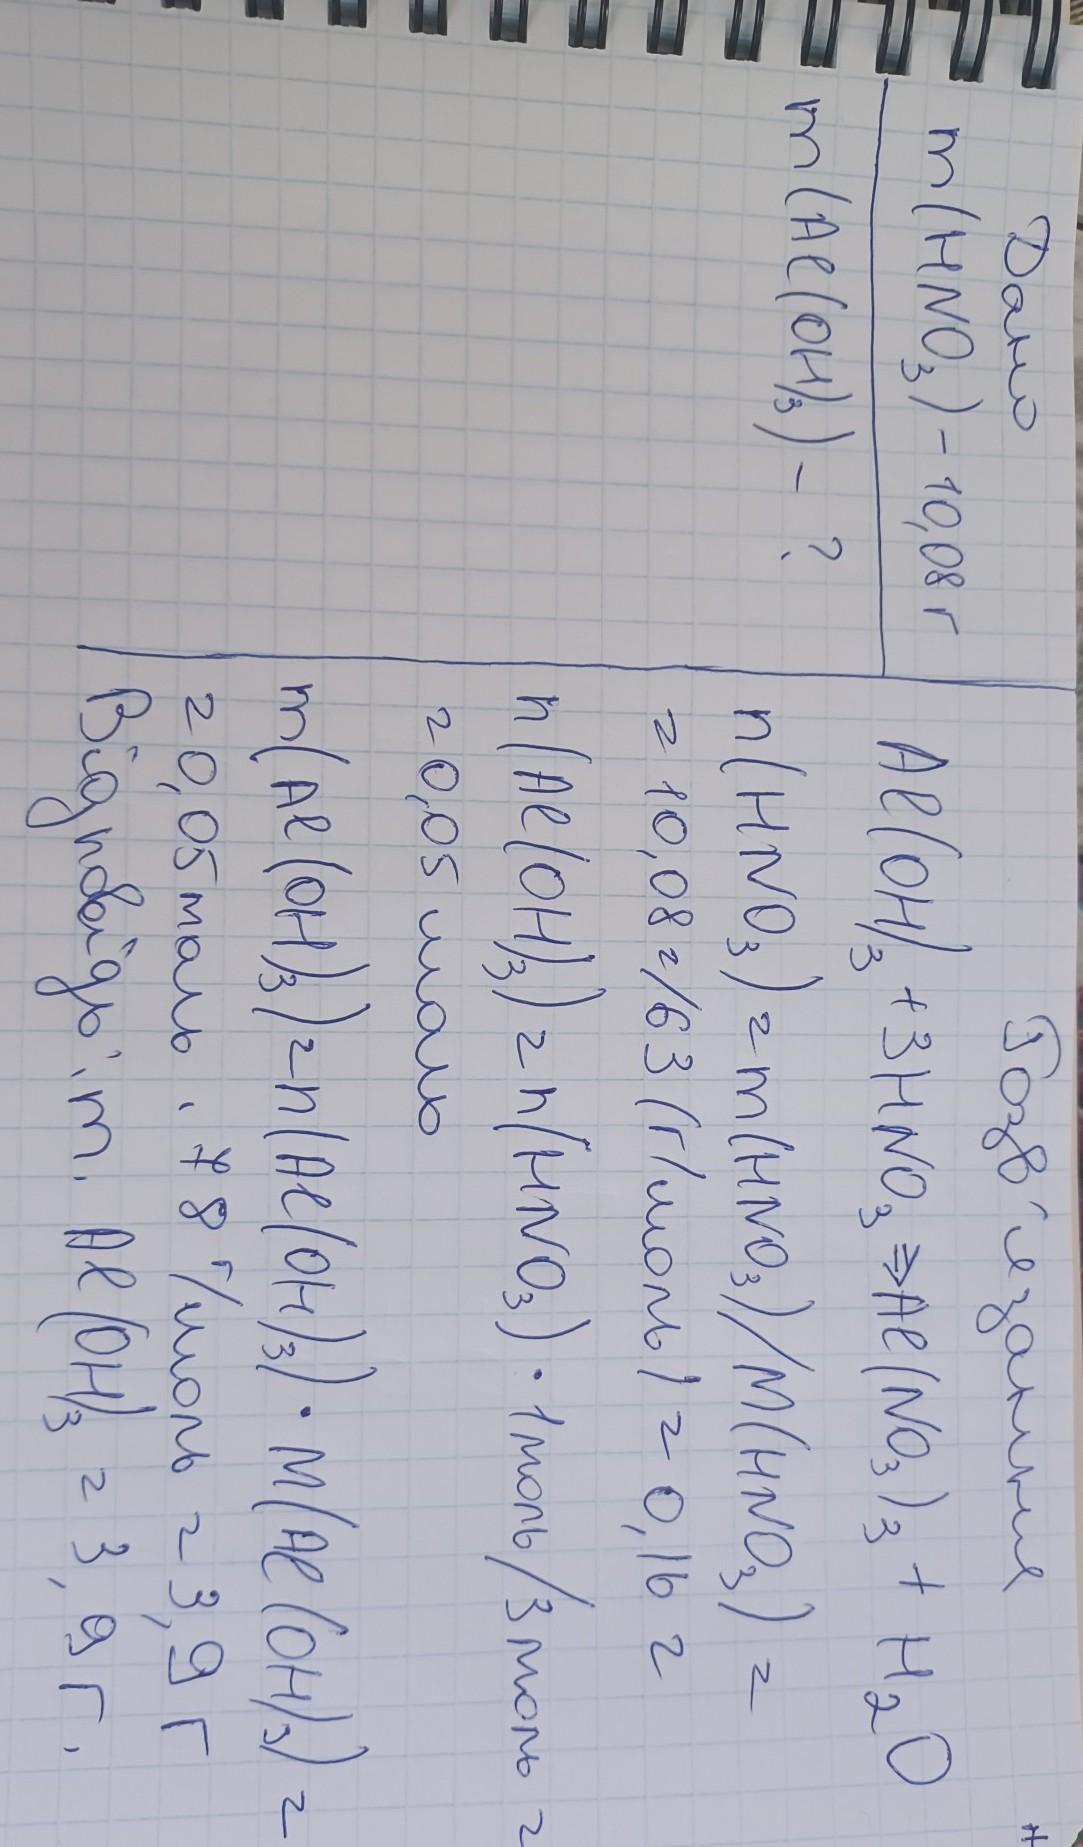 Дано
m(HNO₃) - 10,08 г
m(Al(OH)₃) - ?
Розв'язання
Al(OH)₃ + 3HNO₃ ⇒ Al(NO₃)₃ + H₂O
n(HNO₃) = m(HNO₃)/M(HNO₃) =
= 10,08 г/63 (г/моль) = 0,16 =
n(Al(OH)₃) = n(HNO₃) · 1 моль/3 моль =
= 0,05 моль
m(Al(OH)₃) = n(Al(OH)₃) · M(Al(OH)₃) =
= 0,05 моль · 78 г/моль = 3,9 г
Відповідь: m. Al(OH)₃ = 3,9 г.